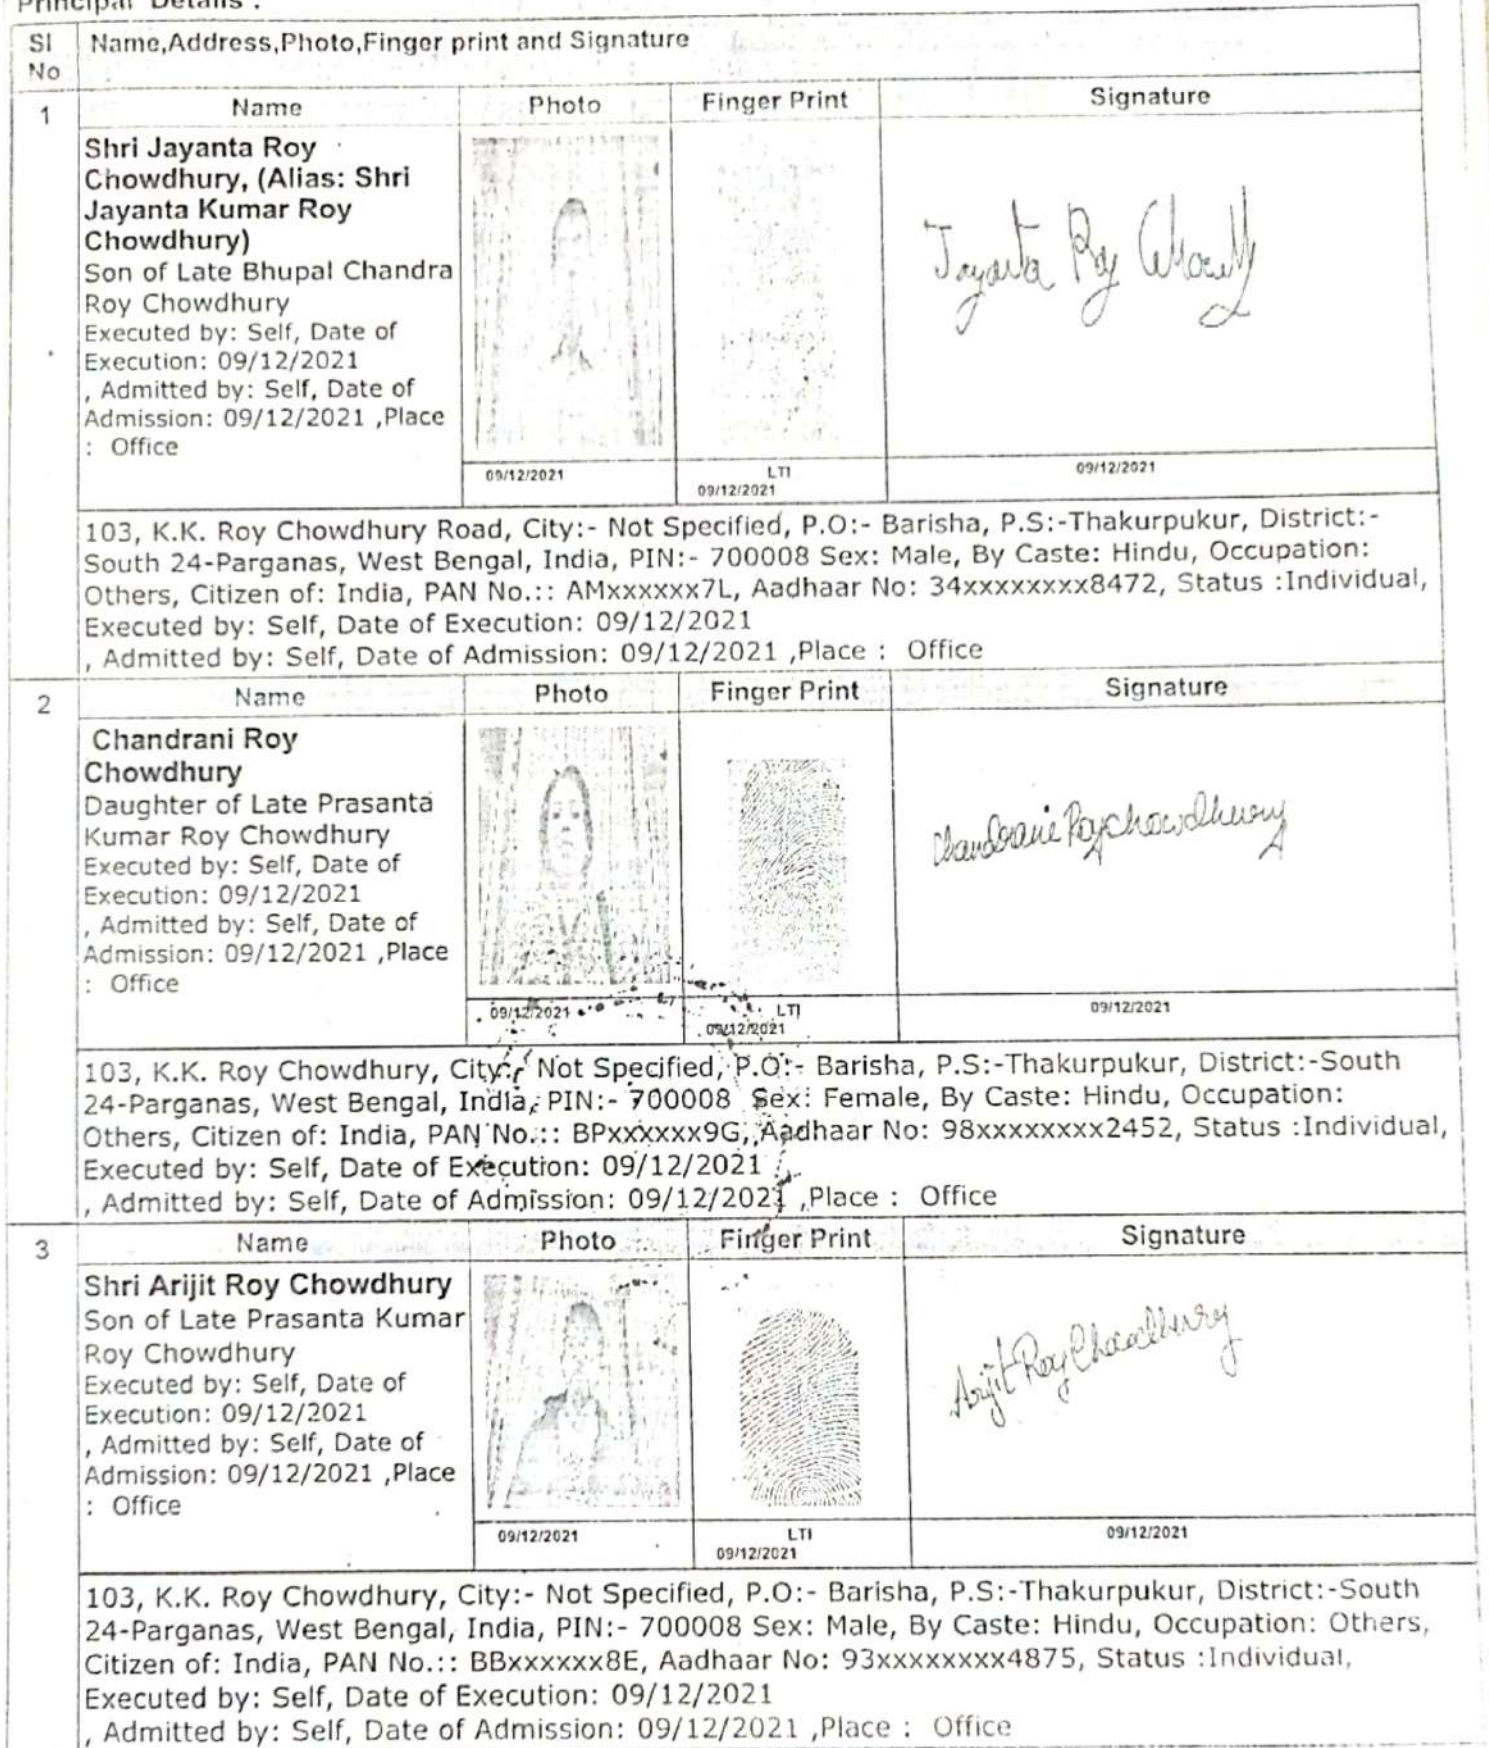 Principal Details :
Sl No
Name,Address,Photo,Finger print and Signature
1
Name
Photo
Finger Print
Signature
Shri Jayanta Roy
Chowdhury, (Alias: Shri
Jayanta Kumar Roy
Chowdhury)
Son of Late Bhupal Chandra
Roy Chowdhury
Executed by: Self, Date of
Execution: 09/12/2021
, Admitted by: Self, Date of
Admission: 09/12/2021 ,Place
: Office
Jayanta Roy
09/12/2021
LTI
09/12/2021
09/12/2021
103, K.K. Roy Chowdhury Road, City:- Not Specified, P.O:- Barisha, P.S:-Thakurpukur, District:-
South 24-Parganas, West Bengal, India, PIN:- 700008 Sex: Male, By Caste: Hindu, Occupation:
Others, Citizen of: India, PAN No.:: AMxxxxxx7L, Aadhaar No: 34xxxxxxxx8472, Status :Individual,
Executed by: Self, Date of Execution: 09/12/2021
, Admitted by: Self, Date of Admission: 09/12/2021 ,Place : Office
2
Name
Photo
Finger Print
Signature
Chandrani Roy
Chowdhury
Daughter of Late Prasanta
Kumar Roy Chowdhury
Executed by: Self, Date of
Execution: 09/12/2021
, Admitted by: Self, Date of
Admission: 09/12/2021 ,Place
: Office
Chandranie Roychowdhury
09/12/2021
LTI
09/12/2021
09/12/2021
103, K.K. Roy Chowdhury, City:- Not Specified, P.O:- Barisha, P.S:-Thakurpukur, District:-South
24-Parganas, West Bengal, India, PIN:- 700008 Sex: Female, By Caste: Hindu, Occupation:
Others, Citizen of: India, PAN No.:: BPxxxxxx9G, Aadhaar No: 98xxxxxxxx2452, Status :Individual,
Executed by: Self, Date of Execution: 09/12/2021
, Admitted by: Self, Date of Admission: 09/12/2021 ,Place : Office
3
Name
Photo
Finger Print
Signature
Shri Arijit Roy Chowdhury
Son of Late Prasanta Kumar
Roy Chowdhury
Executed by: Self, Date of
Execution: 09/12/2021
, Admitted by: Self, Date of
Admission: 09/12/2021 ,Place
: Office
Arijit Roy Chowdhury
09/12/2021
LTI
09/12/2021
09/12/2021
103, K.K. Roy Chowdhury, City:- Not Specified, P.O:- Barisha, P.S:-Thakurpukur, District:-South
24-Parganas, West Bengal, India, PIN:- 700008 Sex: Male, By Caste: Hindu, Occupation: Others,
Citizen of: India, PAN No.:: BBxxxxxx8E, Aadhaar No: 93xxxxxxxx4875, Status :Individual,
Executed by: Self, Date of Execution: 09/12/2021
, Admitted by: Self, Date of Admission: 09/12/2021 ,Place : Office